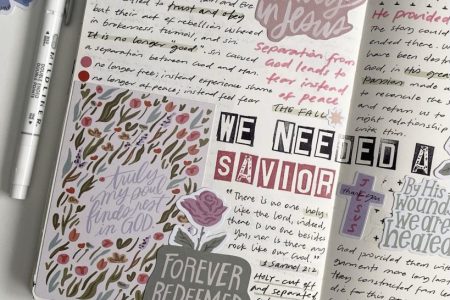 called to trust and obey
but their act of rebellion ushered
in brokenness, turmoil, and sin.
It is no longer "good". Sin caused
a separation between God and man.
no longer free; instead experience shame
no longer at peace; instead feel fear
MILDLINER
truly
my soul
finds rest
in GOD
in Jesus
Separation from
God leads to
fear instead
of peace
THE FALL
WE NEEDED A
SAVIOR
"There is no one holy
like the Lord, indeed,
there is no one besides
You, nor is there any
rock like our God."
1 Samuel 2:2
Holy - cut off
and separated
FOREVER
REDEEMED
He provided
The story could
ended there. We
have been destroyed
God, in His great
made
to reconcile the
and return us to
right relationship
with Him.
thank you
JESUS
By His
wounds
we are
healed
God provided them with
garments more long
they constructed from